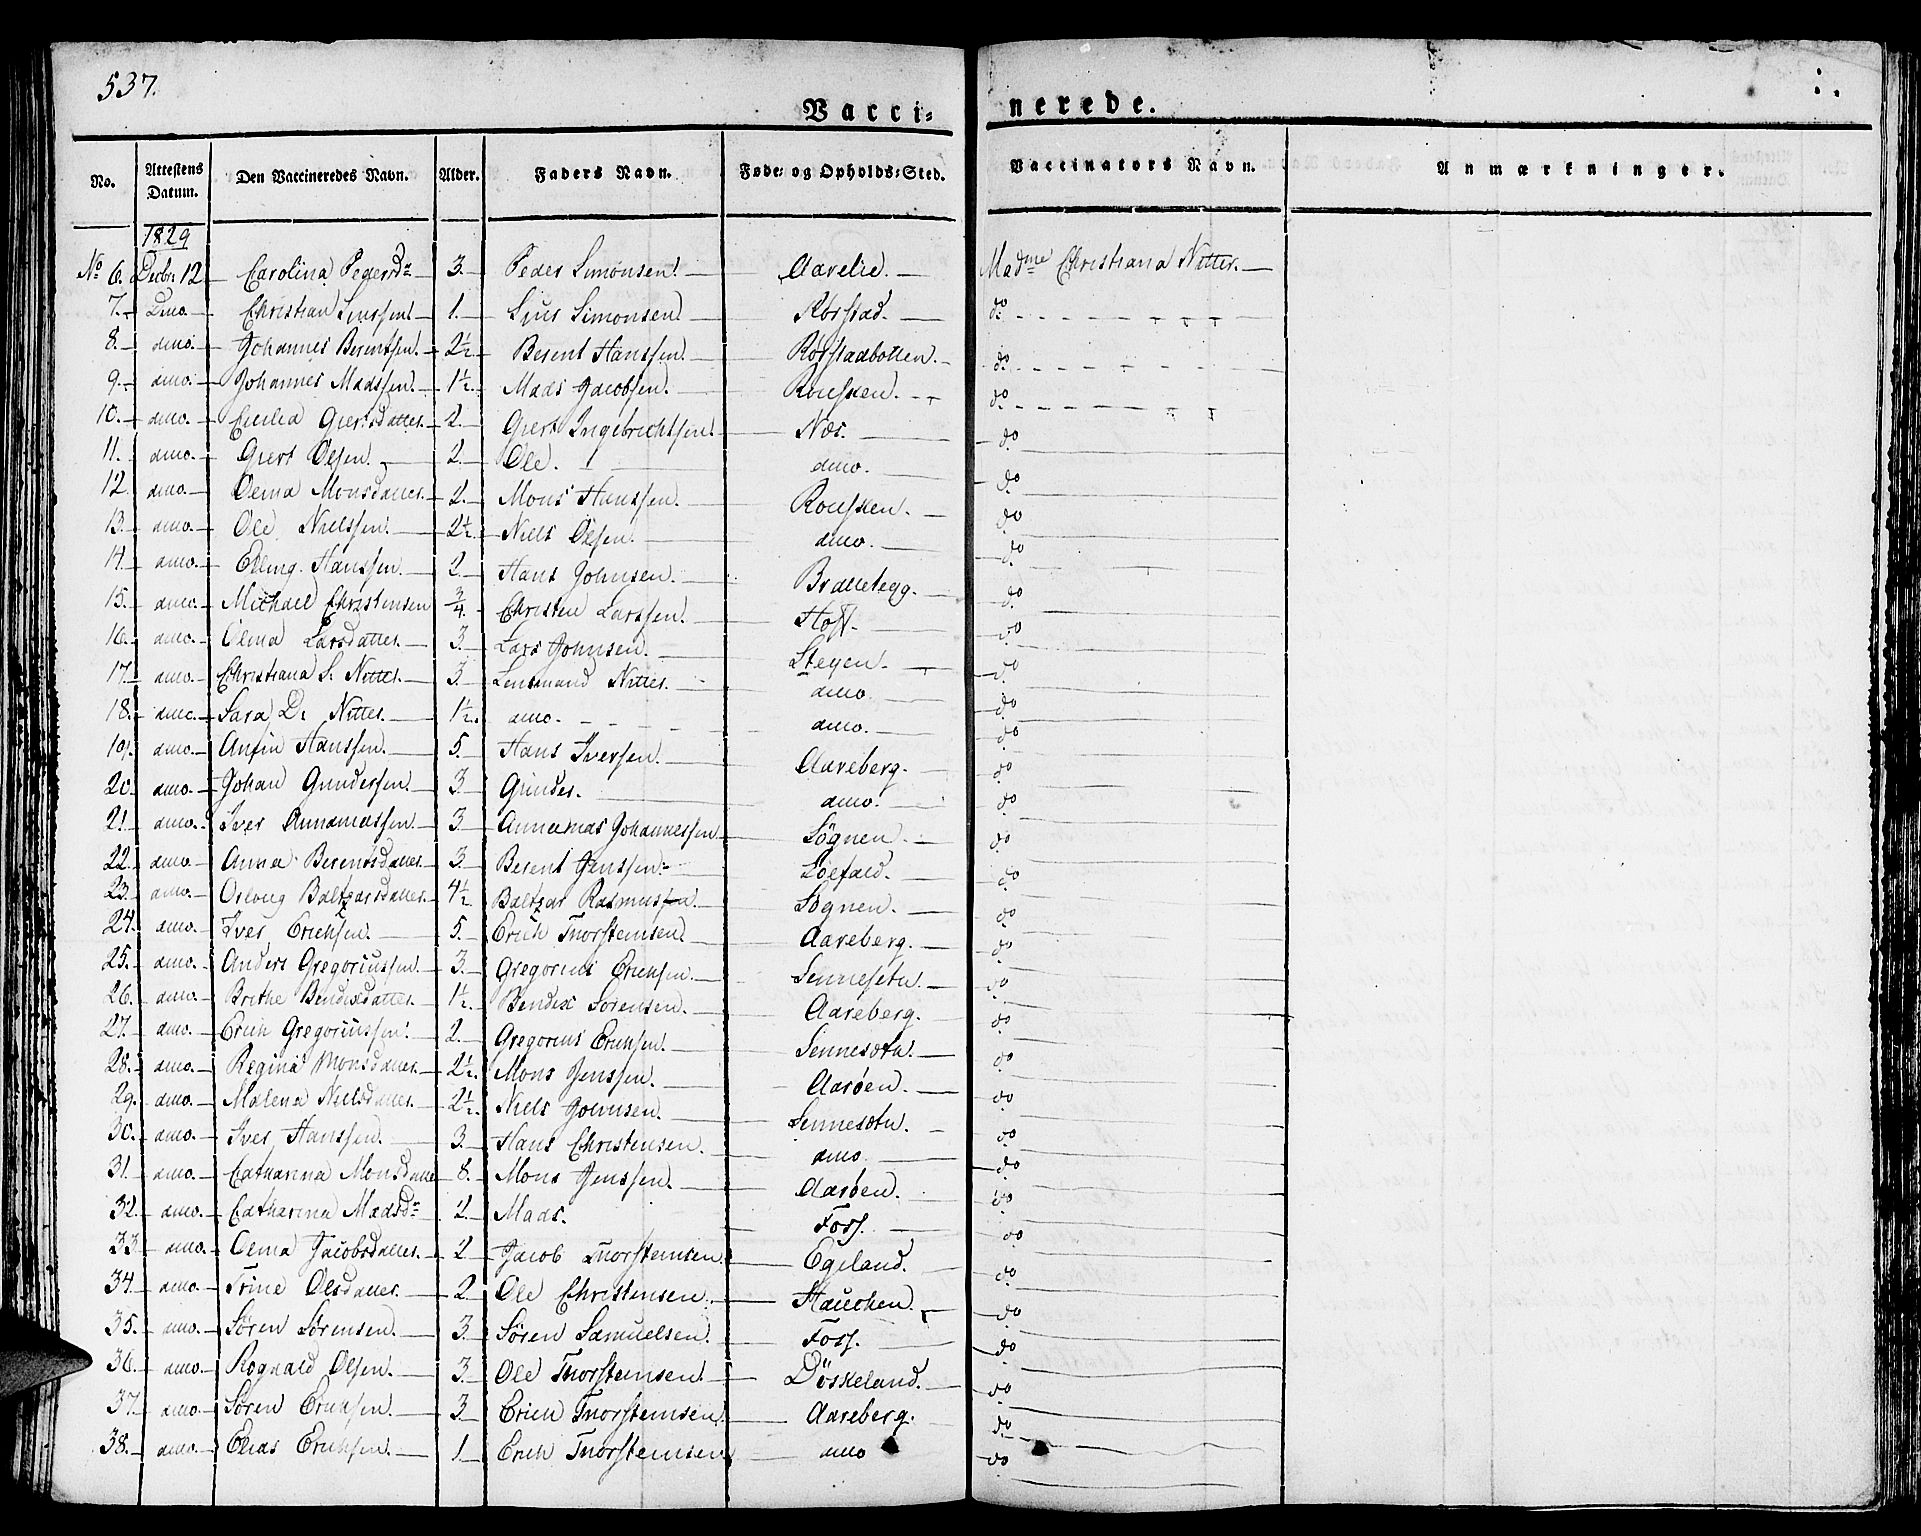 537.
Vacci= nerede.
No. Attestens Datum. Den Vaccineredes Navn. Alder. Faders Navn. Føde- og Opholds-Sted. Vaccinators Navn. Anmærkninger.
1829
No 6. Decbr: 12 Carolina Pedersdr 3. Peder Simonsen. Aarelie. Madme Christiana Nitter.
7. Dmo Christian 1. Simonsen Rørstad. do
8. dmo. Johannes Berentsen. 2½ Berent Hanssen. Rørstadbotten. do
9. dmo. Johannes Madssen. 1½ Mads Jacobsen. Rousken. do
10. dmo. Cecilia Giertsdatter. 2. Giert Ingebrichtsen. Næs. do
11. dmo. Giert Olsen. 2. Ole. dmo. do
12. dmo. Oema Monsdatter. 2. Mons Hanssen. Rousken. do
13. dmo. Ole Nielssen. 2½ Niels Olsen. dmo. do
14. dmo. Elling Hanssen. 2. Hans Johnsen. Brattetegg. do
15. dmo. Michael Christensen ¾ Christen Larssen. Hoff. do
16. dmo. Larsdatter. 3. Lars Johnsen. Steyen. do
17. dmo. Christiana S. Nitter. 3. Lensmand Nitter. dmo do
18. dmo. Sara D. Nitter. 1½. dmo. dmo. do
19. dmo. Anfin Hanssen. 5. Hans Iversen. Aareberg. do
20. dmo. Johan Gunderssen. 3 Gunder. dmo. do
21. dmo. Iver Annanæssen. 3. Annanæs Johannessen Søgnen. do
22. dmo. Anna Berentsdatter. 3. Berent Jenssen. do
23. dmo. Baltzarsdatter. 4½ Baltzar Rasmussen. Søgnen. do
24. dmo. Iver Erichsen. 5. Erich Thorsteinsen. Aareberg. do
25. dmo. Anders Gregoriussen. 3. Gregorius Erichsen. do
26. dmo. Brithe Bendixdatter. 1½. Bendix Sørensen. Aareberg. do
27. dmo. Erich Gregoriussen. 2. Gregorius Erichsen. do
28. dmo. Regina Monsdatter. 2½. Mons Jenssen. Aarøen. do
29. dmo. Malena Nielsdatter. 2½. Niels Johnsen. do
30. dmo. Iver Hanssen. 3. Hans Christensen. dmo. do
31. dmo. Catharina Monsdatter 8. Mons Jenssen. Aarøen. do
32. dmo. Catharina Madsdr 2. Mads. Foss. do
33. dmo. Oema Jacobsdatter. 2 Jacob Thorsteinsen Egeland. do
34. dmo. Trine Olsdatter. 2 Ole Christensen. do
35. dmo. Søren Sørensen. 3. Søren Samuelsen. Foss. do
36. dmo. Rognald Olsen. 3. Ole Thorsteinsen. Døskeland. do
37 dmo. Søren Erichsen. 3 Erich Thorsteinsen Aareberg. do
38. dmo. Elias Erichsen. 1 Erich Thorsteinsen dmo do